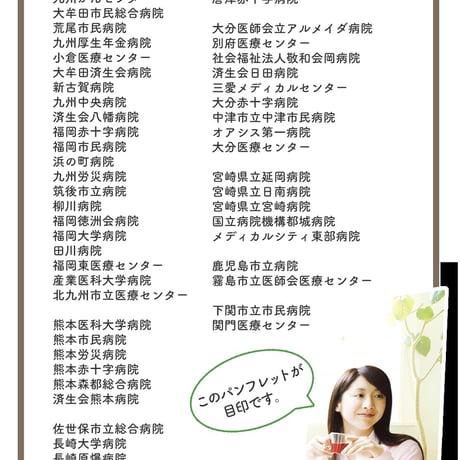 九州がんセンター
大牟田市民総合病院
荒尾市民病院
九州厚生年金病院
小倉医療センター
大牟田済生会病院
新古賀病院
九州中央病院
済生会八幡病院
福岡赤十字病院
福岡市民病院
浜の町病院
九州労災病院
筑後市立病院
柳川病院
福岡徳洲会病院
福岡大学病院
田川病院
福岡東医療センター
産業医科大学病院
北九州市立医療センター
熊本医科大学病院
熊本市民病院
熊本労災病院
熊本赤十字病院
熊本森都総合病院
済生会熊本病院
佐世保市立総合病院
長崎大学病院
長崎原爆病院
唐津赤十字病院
大分医師会立アルメイダ病院
別府医療センター
社会福祉法人敬和会岡病院
済生会日田病院
三愛メディカルセンター
大分赤十字病院
中津市立中津市民病院
オアシス第一病院
大分医療センター
宮崎県立延岡病院
宮崎県立日南病院
宮崎県立宮崎病院
国立病院機構都城病院
メディカルシティ東部病院
鹿児島市立病院
霧島市立医師会医療センター
下関市立市民病院
関門医療センター
このパンフレットが
目印です。